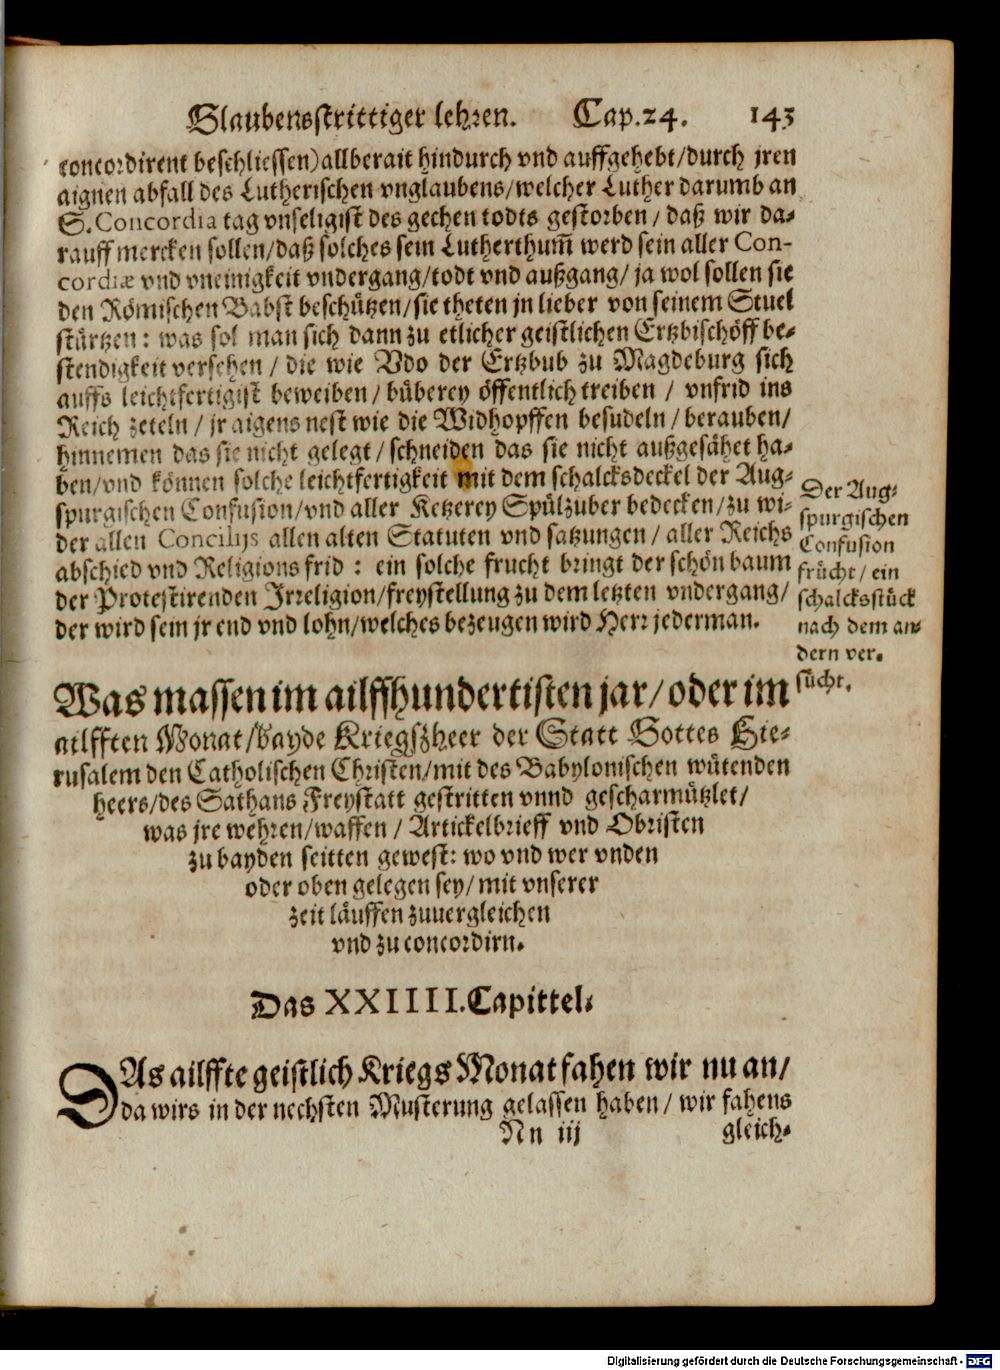 Glaubensstrittiger lehren. Cap.24. 143
concordirent beschliessen) allberait hindurch vnd auffgehebt/durch jren
aignen abfall des Lutherischen vnglaubens/welcher Luther darumb an
S. Concordia tag vnseligist des gechen todts gestorben / daß wir da-
rauff mercken sollen/daß solches sein Lutherthum̃ werd sein aller Con-
cordiæ vnd vneinigkeit vndergang/todt vnd außgang/ ja wol sollen sie
den Römischen Babst beschützen/sie theten jn lieber von seinem Stuel
stürtzen: was sol man sich dann zu etlicher geistlichen Ertzbischöff be-
stendigkeit versehen / die wie Vdo der Ertzbub zu Magdeburg sich
auffs leichtfertigist beweiben / büberey öffentlich treiben / vnfrid ins
Reich zeteln / jr aigens nest wie die Widhopffen besudeln / berauben/
hinnemen das sie nicht gelegt / schneiden das sie nicht außgesähet ha-
ben/vnd können solche leichtfertigkeit mit dem schalcksdeckel der Aug-
spurgischen Confusion/vnd aller Ketzerey Spülzuber bedecken/zu wi-
der allen Concilijs allen alten Statuten vnd satzungen / aller Reichs
abschied vnd Religions frid : ein solche frucht bringt der schön baum
der Protestirenden Irreligion/freystellung zu dem letzten vndergang/
der wird sein jr end vnd lohn/welches bezeugen wird Herr jederman.
Der Aug-
spurgischen
Confusion
frücht / ein
schalcksstück
nach dem an-
dern ver-
sücht.
Was massen im ailffhundertisten jar/oder im
ailfften Monat/bayde Kriegszheer der Statt Gottes Hie-
rusalem den Catholischen Christen/mit des Babylonischen wütenden
heers/des Sathans Freystatt gestritten vnnd gescharmützlet/
was jre wehren/waffen / Artickelbrieff vnd Obristen
zu bayden seitten gewest: wo vnd wer vnden
oder oben gelegen sey/ mit vnserer
zeit läuffen zuuergleichen
vnd zu concordirn.
Das XXIIII. Capittel.
DAs ailffte geistlich Kriegs Monat fahen wir nu an/
da wirs in der nechsten Musterung gelassen haben / wir fahens
Nn iij gleich-
Digitalisierung gefördert durch die Deutsche Forschungsgemeinschaft - DFG